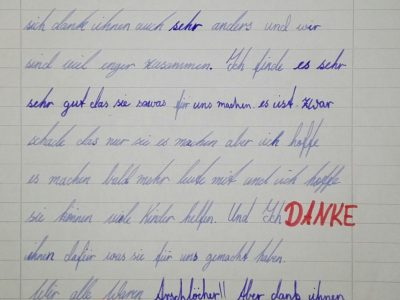 sich dank ihnen auch sehr anders und wir
sind viel enger zusammen. Ich finde es sehr
sehr gut das sie sowas für uns machen. es ist zwar
schade das nur sie es machen aber ich hoffe
es machen bald mehr leute mit und ich hoffe
sie können viele Kinder helfen. Und Ich DANKE
ihnen dafür was sie für uns gemacht haben.
Wir alle waren Arschlöcher!! Aber dank ihnen